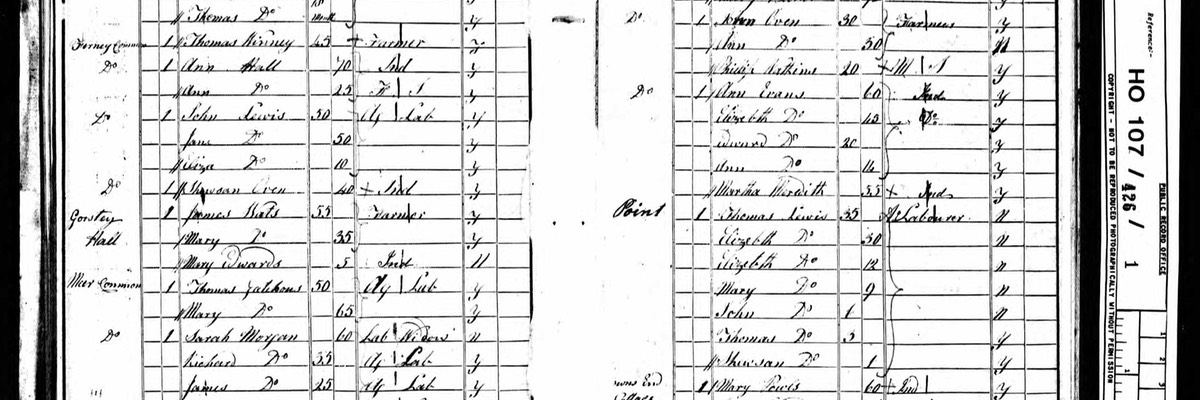 Thomas Do Y
Ferney Common 1 Thomas Kinney 45 Farmer Y
Do 1 Ann Hall 70 Ind Y
Ann Do 25 F S Y
Do 1 John Lewis 50 Ag Lab Y
Jane Do 50 Y
Eliza Do 10 Y
Do 1 Oven 40 Ind Y
Gorstey 1 James 55 Farmer Y
Hall Mary Do 35 Y
Mary Edwards 5 Ind N
Meer Common 1 Thomas 50 Ag Lab Y
Mary Do 65 Y
Do 1 Sarah Morgan 60 Lab Widow N
Richard Do 35 Ag Lab Y
James Do 25 Ag Lab Y
Do 1 Oven 30 Farmer Y
Ann Do 50 N
20 M S Y
Do 1 Ann Evans 60 Ind Y
Elizabeth Do 45 Do Y
Edward Do 20 Y
Ann Do 14 Y
Martha Meredith 55 Ind Y
Point 1 Thomas Lewis 35 Labourer N
Elizabeth Do 30 N
Elizabeth Do 12 N
Mary Do 9 N
John Do 6 N
Thomas Do 3 Y
Do 1 Y
1 Mary 60 Ind Y
Reference:-
HO 107 / 426 / 1
PUBLIC RECORD OFFICE
COPYRIGHT - NOT TO BE REPRODUCED PHOTOGRAPHICALLY WITHOUT PERMISSION